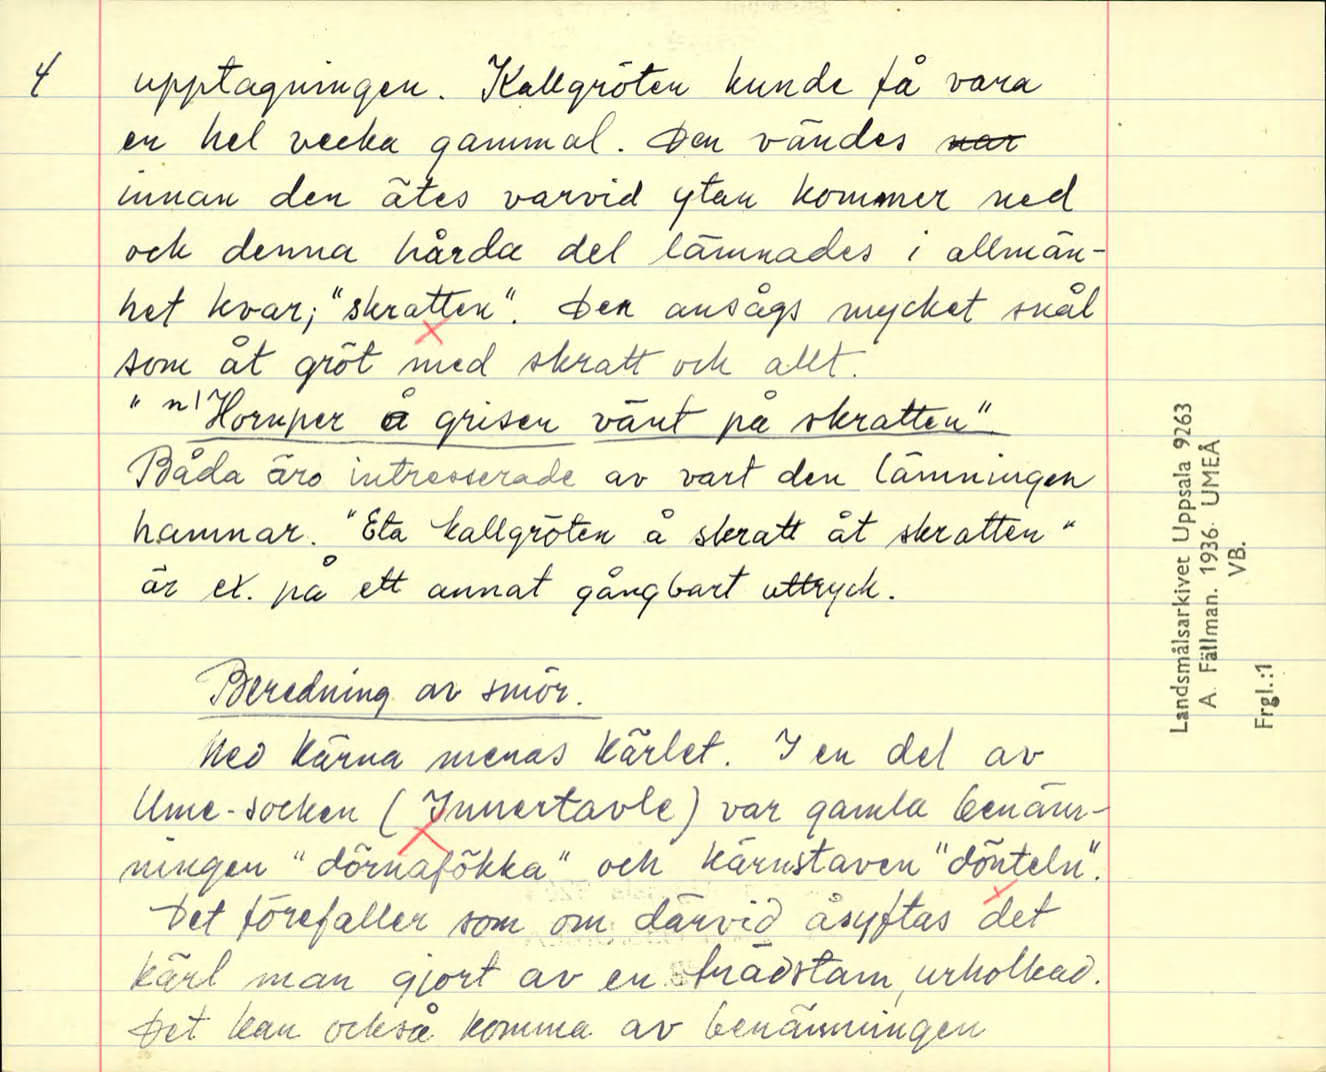 4
upptagningen. Kallgröten kunde få vara
en hel vecka gammal. Den vändes nar
innan den ätes varvid ytan kommer ned
och denna hårda del lämnades i allmän-
het kvar; "skratten". Den ansågs mycket snål
som åt gröt med skratt och allt.
"n' Hornper å grisen vänt på skratten"
Båda äro intresserade av vart den lämningen
hamnar. "Eta kallgröten å skratt åt skratten"
är ex. på ett annat gångbart uttryck.
Beredning av smör.
Med kärna menas kärlet. I en del av
Ume-socken (Innertavle) var gamla benäm-
ningen "dörnafökka" och kärnstaven "dönteln".
Det förefaller som om därvid åsyftas det
kärl man gjort av en trädstam, urholkad.
Det kan också komma av benämningen
Landsmålsarkivet Uppsala 9263
A. Fällman. 1936. UMEÅ
VB.
Frgl.:1